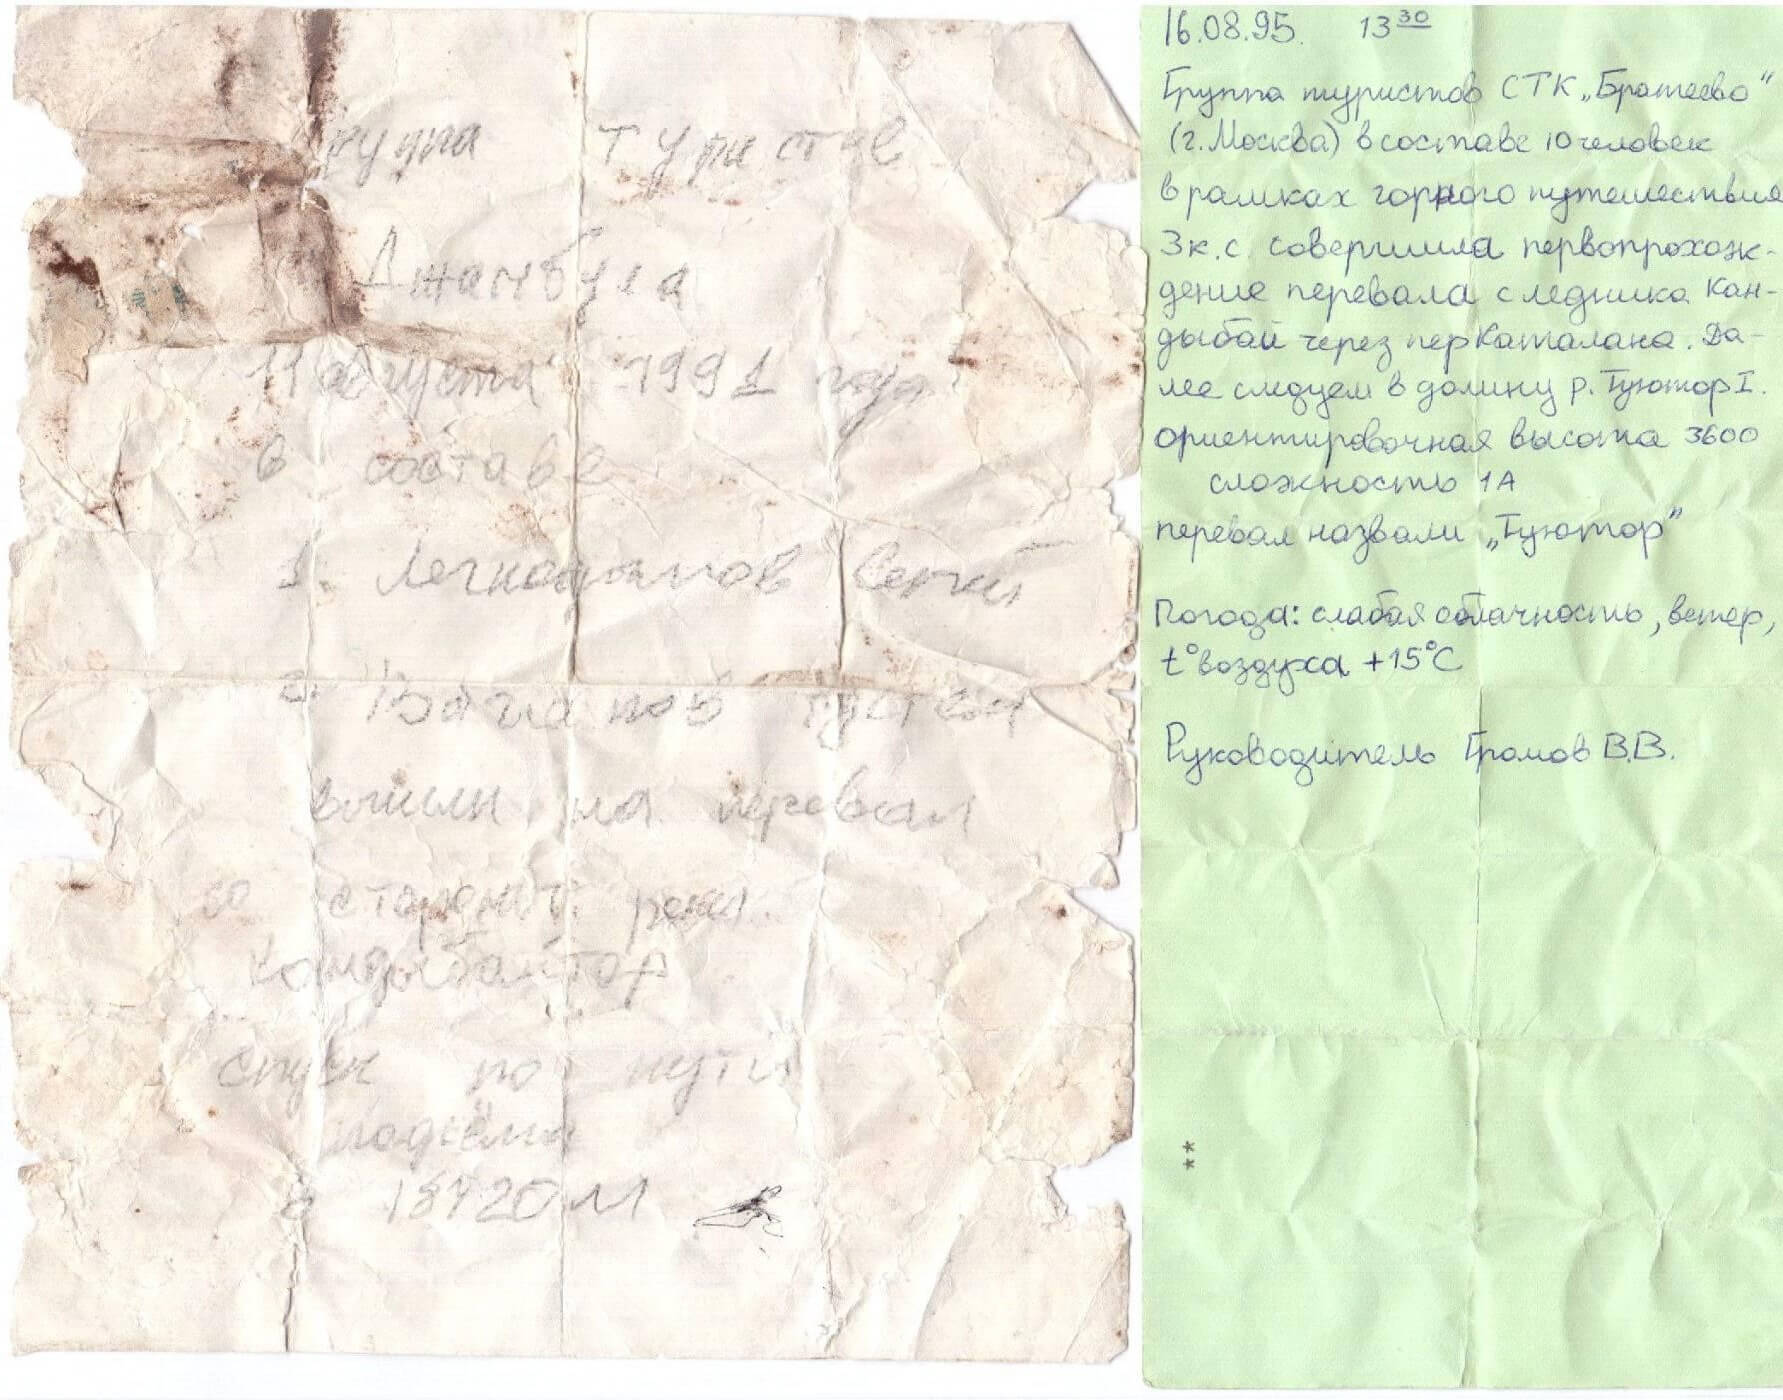 группа туристов
Джамбула
11 августа 1991 года
в составе
1. Легкодымов Сергей
2.
вышли на перевал
со стороны
Кандыбайтор
спуск по пути
подъёма
в
16.08.95. 13 30
Группа туристов СТК „Братеево"
(г. Москва) в составе 10 человек
в рамках горного путешествия
3 к.с. совершила первопрохож-
дение перевала с ледника Кан-
дыбай через пер Каталана. Да-
лее следуем в долину р. Туютор I.
ориентировочная высота 3600
сложность 1А
перевал назвали „Туютор"
Погода: слабая облачность, ветер,
t° воздуха +15°C
Руководитель Громов В.В.
**